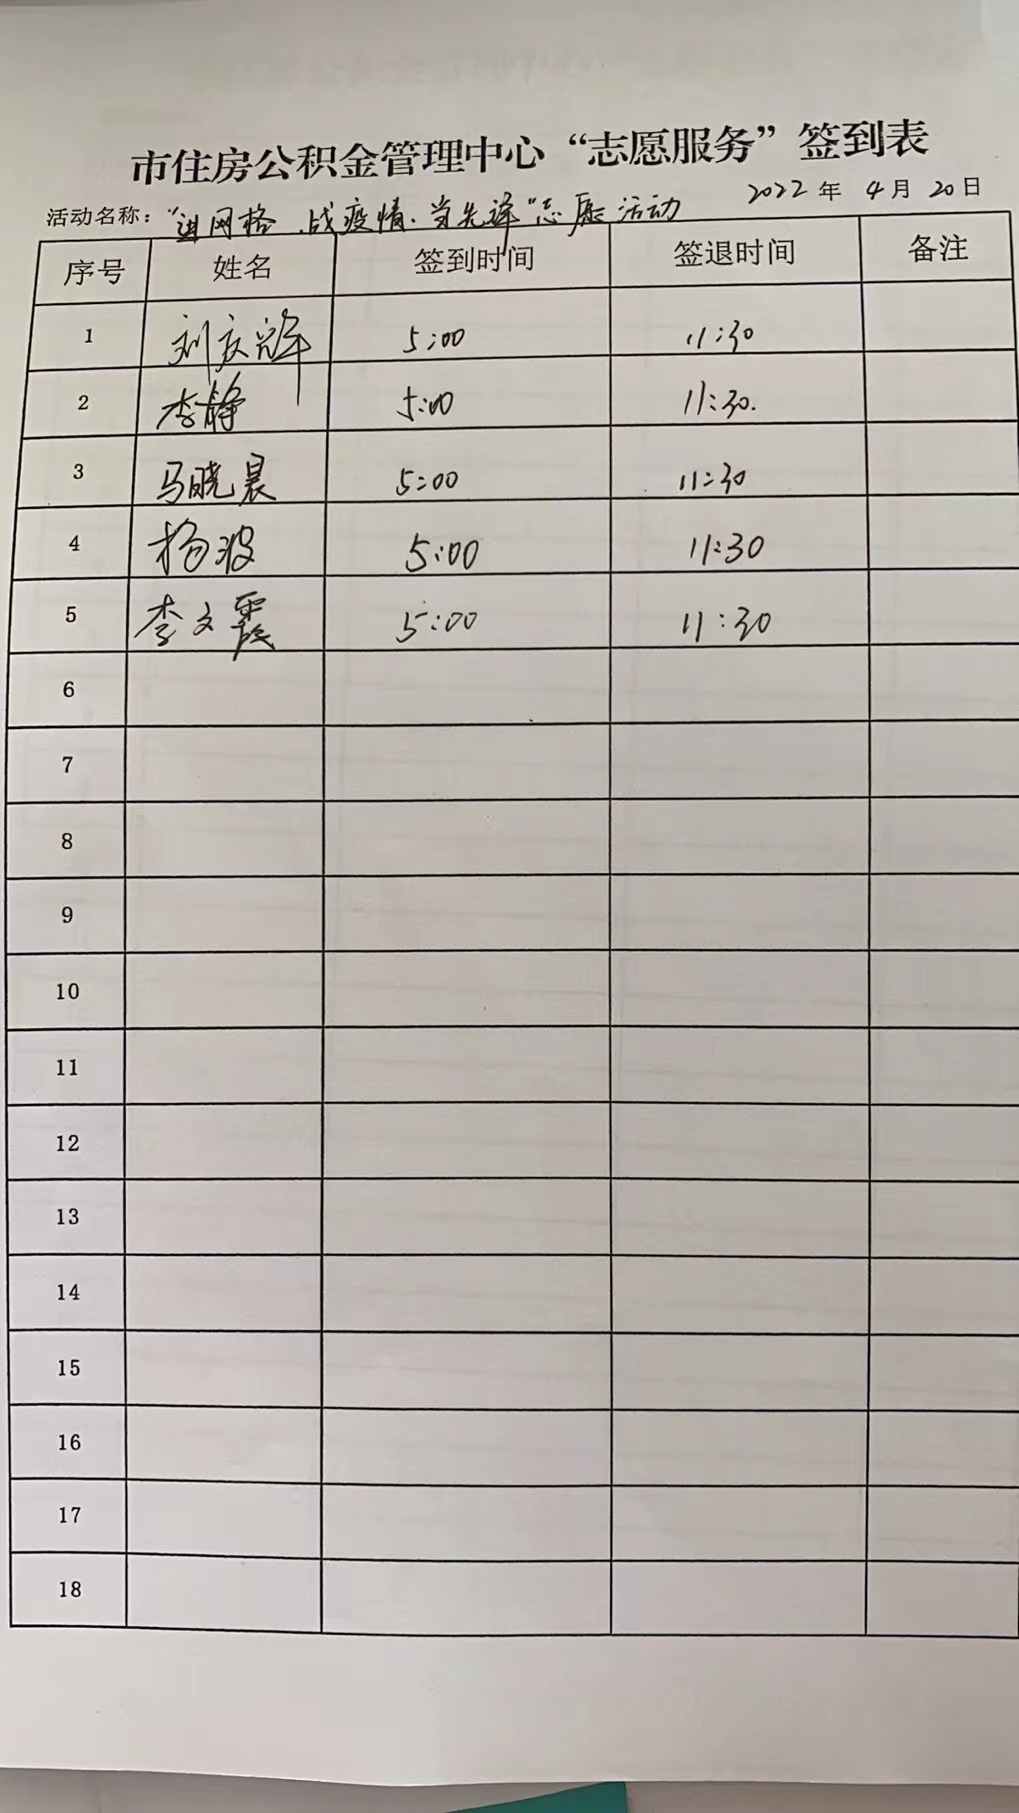 市住房公积金管理中心“志愿服务”签到表
活动名称：“进网格、战疫情、当先锋”志愿活动 2022年 4月 20日
序号 姓名 签到时间 签退时间 备注
1 刘庆 5:00 11:30
2 李静 5:00 11:30.
3 马晓晨 5:00 11:30
4 杨波 5:00 11:30
5 李文霞 5:00 11:30
6
7
8
9
10
11
12
13
14
15
16
17
18